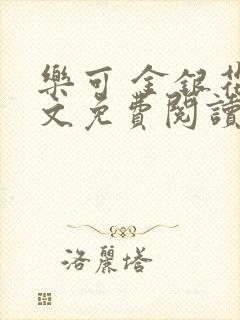 樂可 金銀花
文免費閱讀
洛麗塔